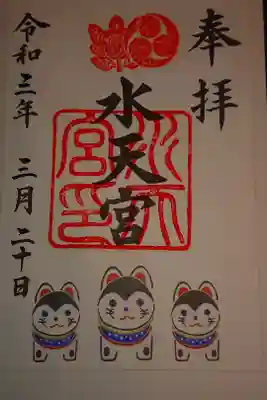 奉拝
水天宮
水天宮印
令和三年 三月二十日